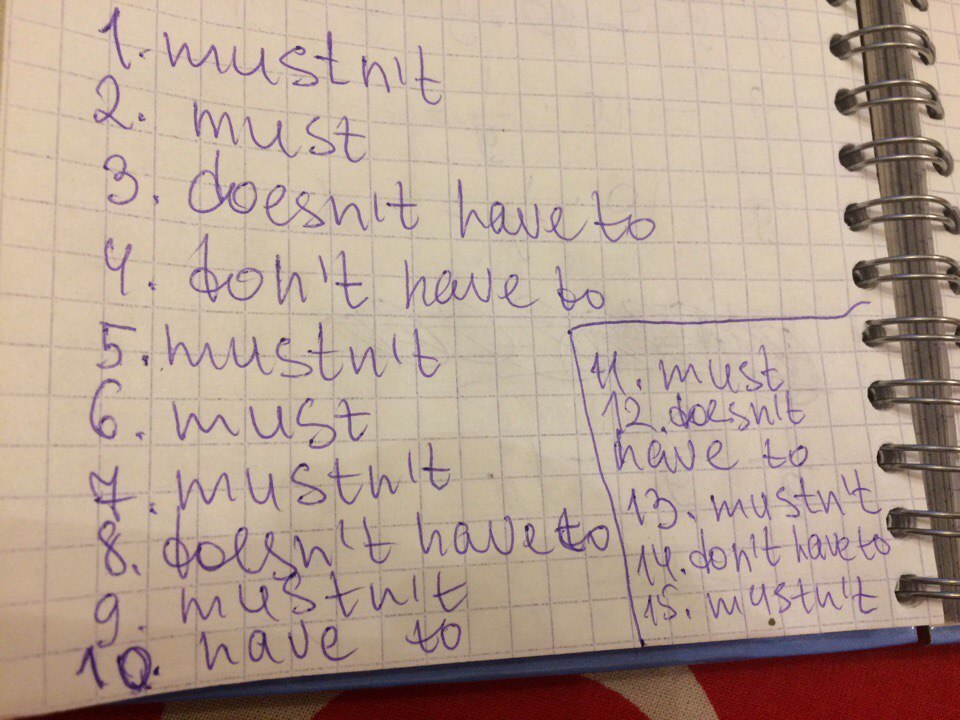 1. mustn't
2. must
3. doesn't have to
4. don't have to
5. mustn't
6. must
7. mustn't
8. doesn't have to
9. mustn't
10. have to
11. must
12. doesn't
have to
13. mustn't
14. don't have to
15. mustn't